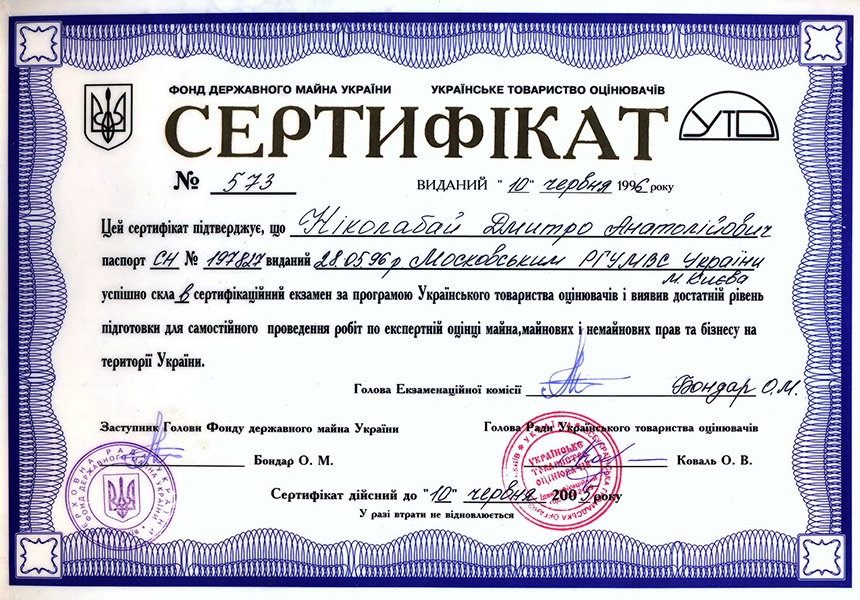 ФОНД ДЕРЖАВНОГО МАЙНА УКРАЇНИ УКРАЇНСЬКЕ ТОВАРИСТВО ОЦІНЮВАЧІВ
СЕРТИФІКАТ
УТО
№ 573 ВИДАНИЙ "10" червня 1996 року
Цей сертифікат підтверджує, що Ніколабай Дмитро Анатолійович
паспорт СН № 197827 виданий 28.05.96 р Московським РГУМВС України
м. Києва
успішно склав сертифікаційний екзамен за програмою Українського товариства оцінювачів і виявив достатній рівень
підготовки для самостійного проведення робіт по експертній оцінці майна, майнових і немайнових прав та бізнесу на
території України.
Голова Екзаменаційної комісії Бондар О.М.
Заступник Голови Фонду державного майна України Голова Ради Українського товариства оцінювачів
Бондар О. М. Коваль О. В.
УКРАЇНСЬКЕ
ТОВАРИСТВО
ОЦІНЮВАЧІВ
Сертифікат дійсний до "10" червня 2005 року
У разі втрати не відновлюється